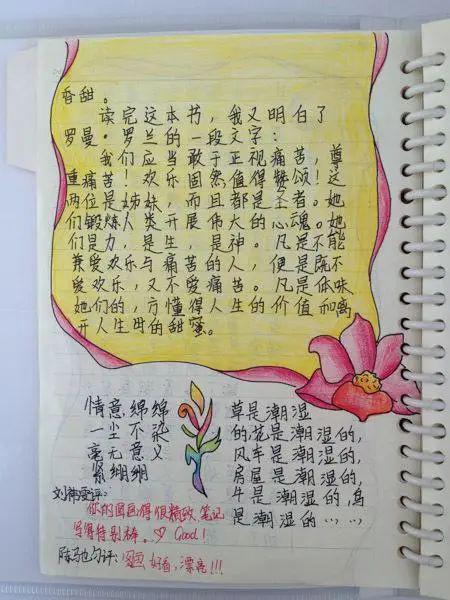 香甜。
读完这本书，我又明白了
罗曼·罗兰的一段文字：
我们应当敢于正视痛苦，尊
重痛苦！欢乐固然值得赞颂！这
两位是姊妹，而且都是圣者。她
们锻炼人类开展伟大的心魂。她
们是力，是生，是神。凡是不能
兼爱欢乐与痛苦的人，便是既不
爱欢乐，又不爱痛苦。凡是体味
她们的，方懂得人生的价值和离
开人生时的甜蜜。
情意绵绵
一尘不染
毫无意义
紧绷绷
草是潮湿
的，花是潮湿的，
风车是潮湿的，
房屋是潮湿的，
牛是潮湿的，鸟
是潮湿的……
评：
你的图画得很精致，笔记
写得特别棒。♡ Good！
评：图画好看，漂亮！！！